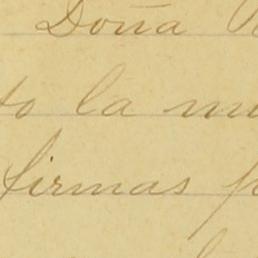 Doña
to la
firmas